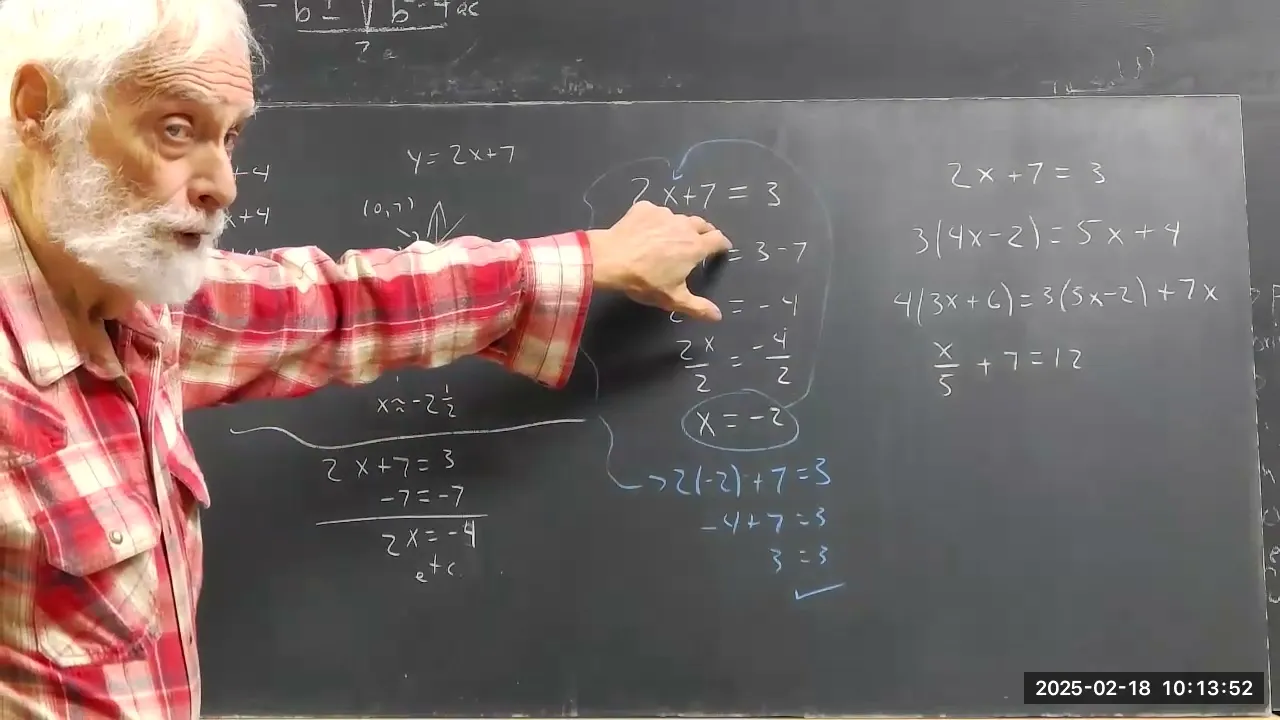 - b ± √ b² - 4ac
2a
x+4
x+4
y = 2x+7
(0,7)
x ≈ -2 1/2
2x+7 = 3
-7 = -7
2x = -4
etc.
2x+7 = 3
= 3-7
2 = -4
2x/2 = -4/2
x = -2
2(-2)+7 = 3
-4+7 = 3
3 = 3
2x+7 = 3
3(4x-2) = 5x+4
4(3x+6) = 3(5x-2)+7x
x/5 + 7 = 12
2025-02-18 10:13:52